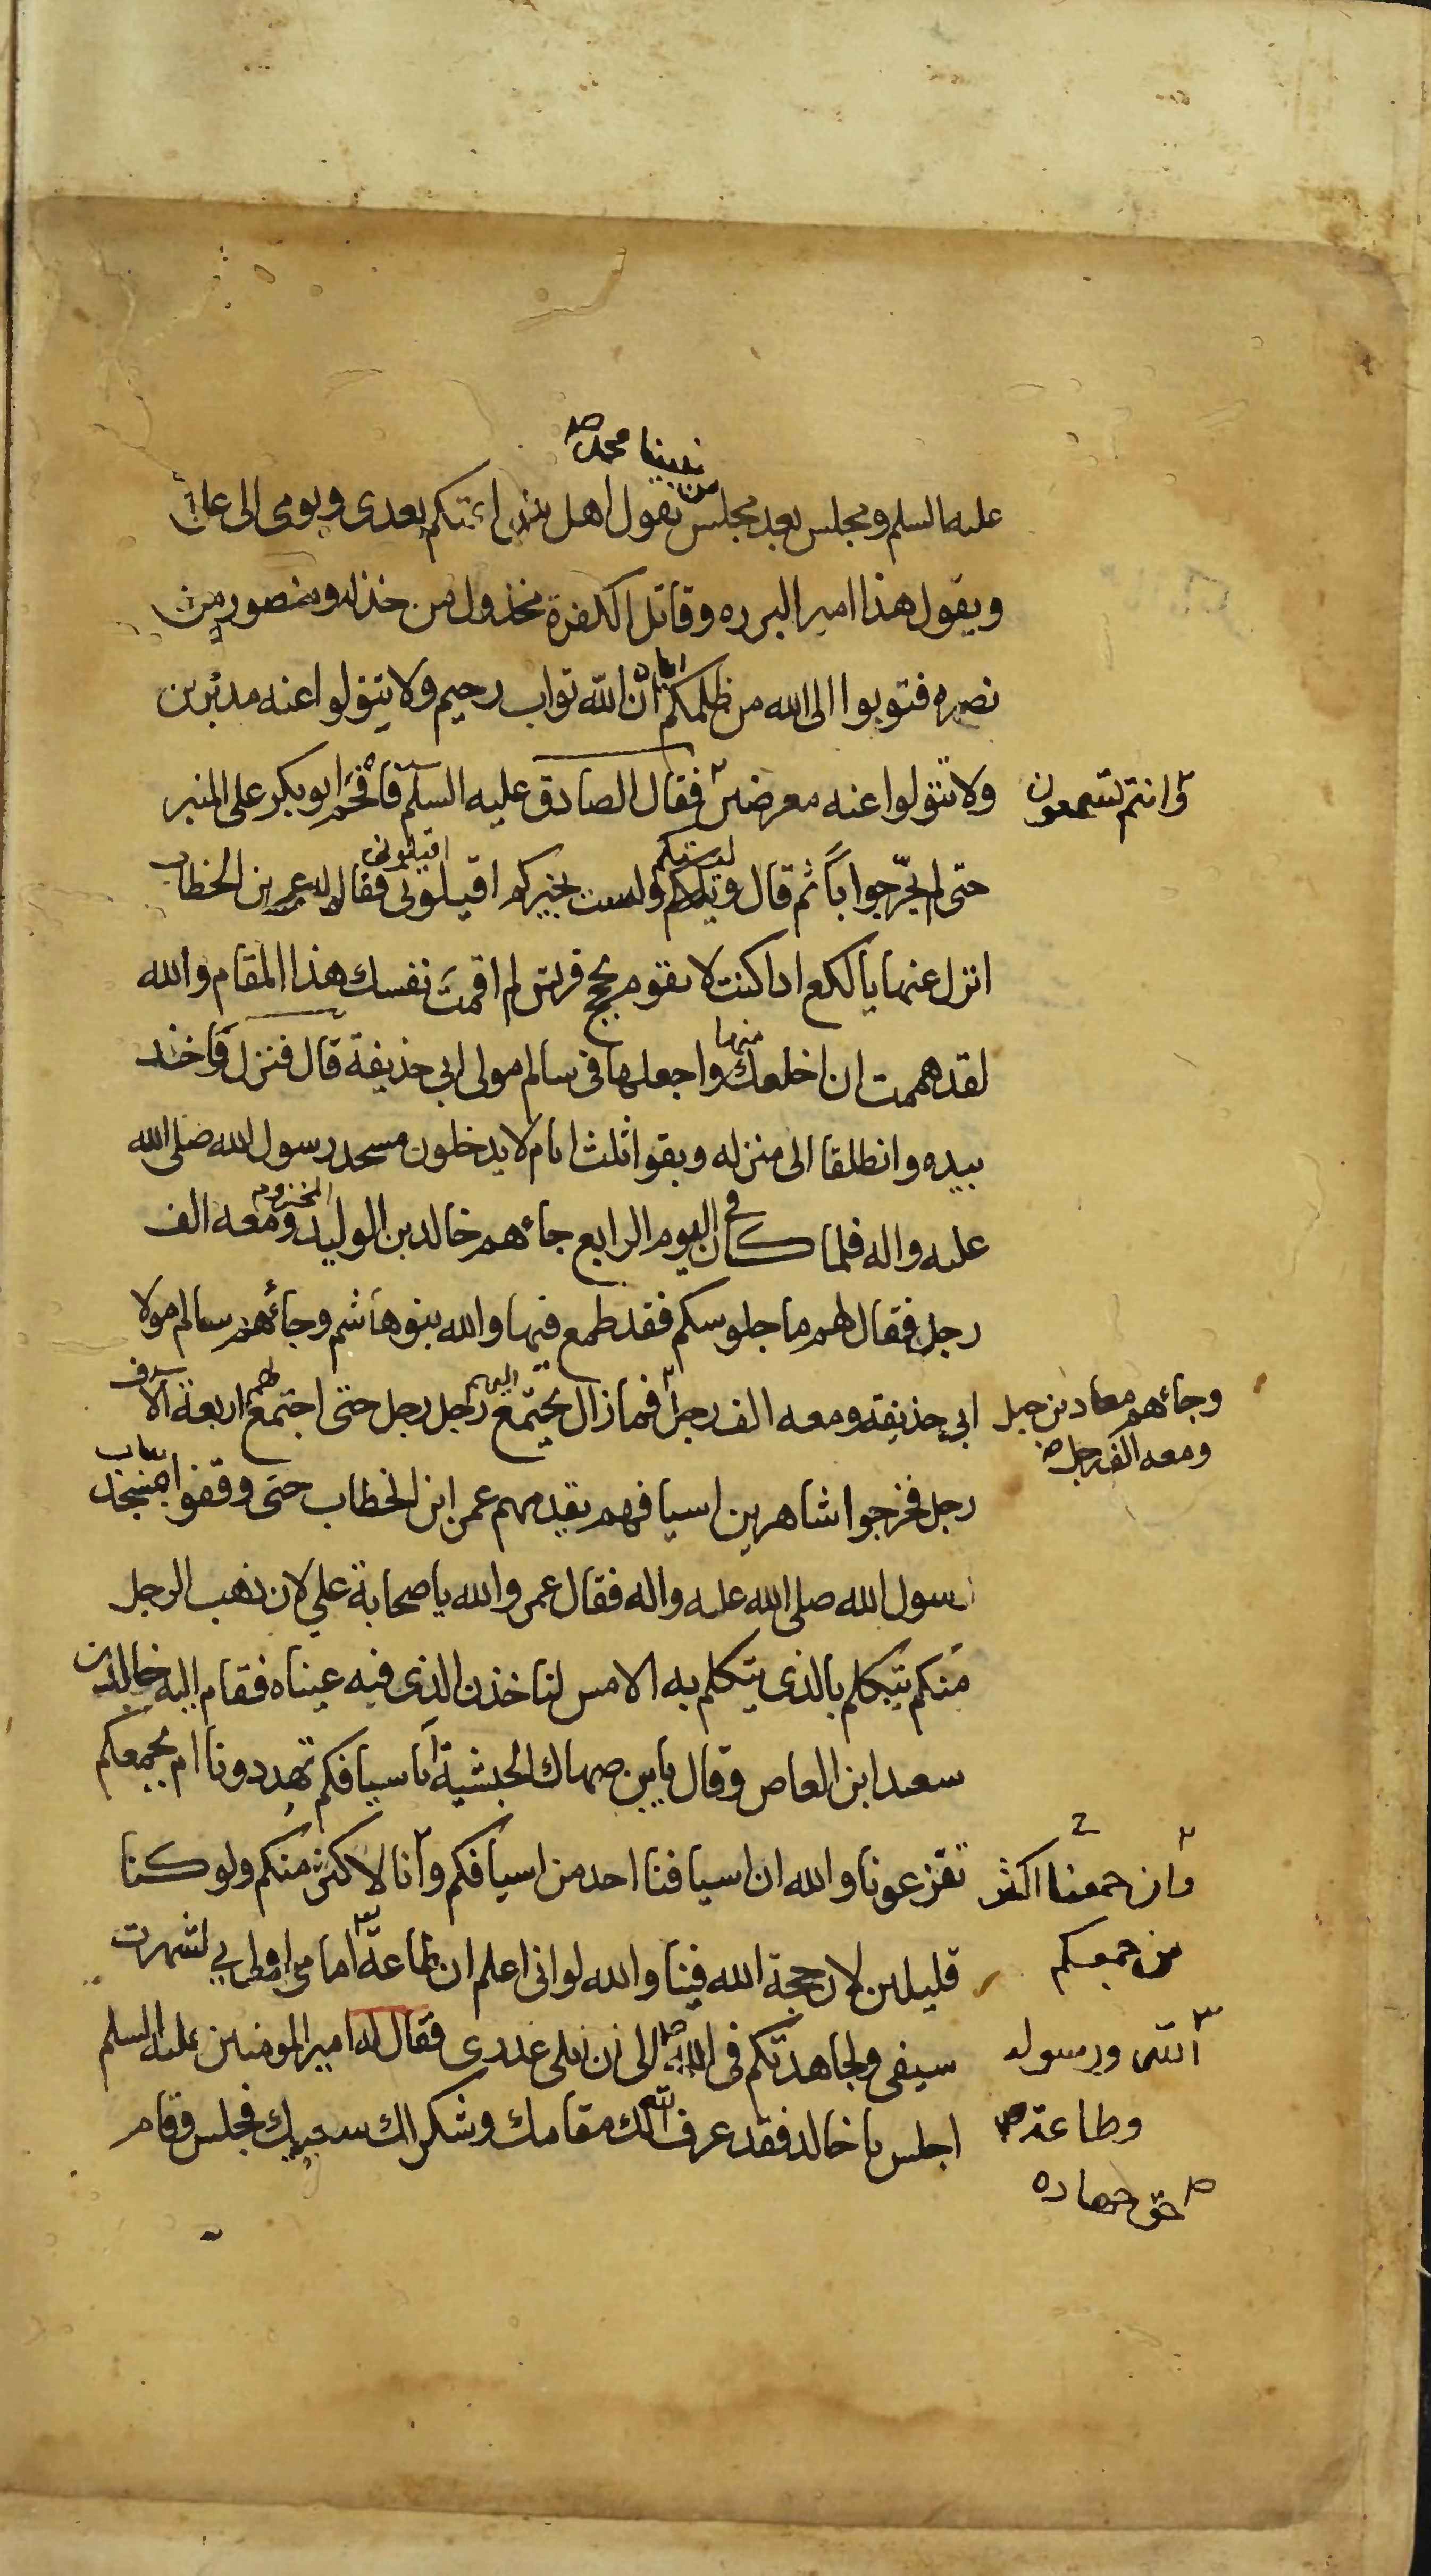 نبينا محمد ص
عليه السلم ومجلس بعد مجلس من يقول اهل ائمتكم بعدى ويومى الى على
ويقول هذا امير البرره وقاتل الكفرة مخذول من خذله ومنصور من
نصره فتوبوا الى الله من ظلمكم ان الله تواب رحيم ولا يتولوا عنه مدبرين
ولا تتولوا عنه معرضين فقال الصادق عليه السلم فافحم ابو بكر على المنبر
وانتم تسمعون
حتى لم يجر جوابا ثم قال وليتكم ولست بخيركم اقيلونى اقيلونى فقال له عمر بن الخطاب
انزل عنها يا لكع اذا كنت لا تقوم بحجج قريش لم اقمت نفسك هذا المقام والله
لقد هممت ان اخلعك منها واجعلها فى سالم مولى ابى حذيفة قال فنزل فاخذ
بيده وانطلقا الى منزله وبقوا ثلث ايام لا يدخلون مسجد رسول الله صلى الله
عليه واله فلما كان فى اليوم الرابع جاءهم خالد بن الوليد المخزومى ومعه الف
رجل فقال لهم ما جلوسكم فقد طمع فيها والله بنو هاشم وجاءهم سالم مولا
ابى حذيفه ومعه الف رجل فما زال يجتمع اليهم رجل رجل حتى اجتمع لهم اربعة الاف
وجاءهم معاذ بن جبل
ومعه الف رجل ص
رجل فخرجوا شاهرين اسيافهم يقدمهم عمر ابن الخطاب حتى وقفوا بمسجد
رسول الله صلى الله عليه واله فقال عمر والله يا صحابة على لان ذهب الرجل
منكم يتكلم بالذى يتكلم به الامس لناخذن الذى فيه عيناه فقام اليه خالد بن
سعيد ابن العاص وقال يابن صهاك الحبشية اباسيافكم تهددونا ام بجمعكم
تفزعونا والله ان اسيافنا احد من اسيافكم وانا لاكثر منكم ولو كنا
وان جمعنا اكثر
من جمعكم
قليلين لان حجة الله فينا والله لو انى اعلم ان طاعة امامى اولى بى لشهرت
سيفى ولجاهدتكم فى الله الى ان ابلى عذرى فقال له امير المومنين عليه السلم
الله ورسوله
وطاعة ص
اجلس يا خالد فقد عرف الله لك مقامك وشكر لك سعيك فجلس وقام
حق جهاده